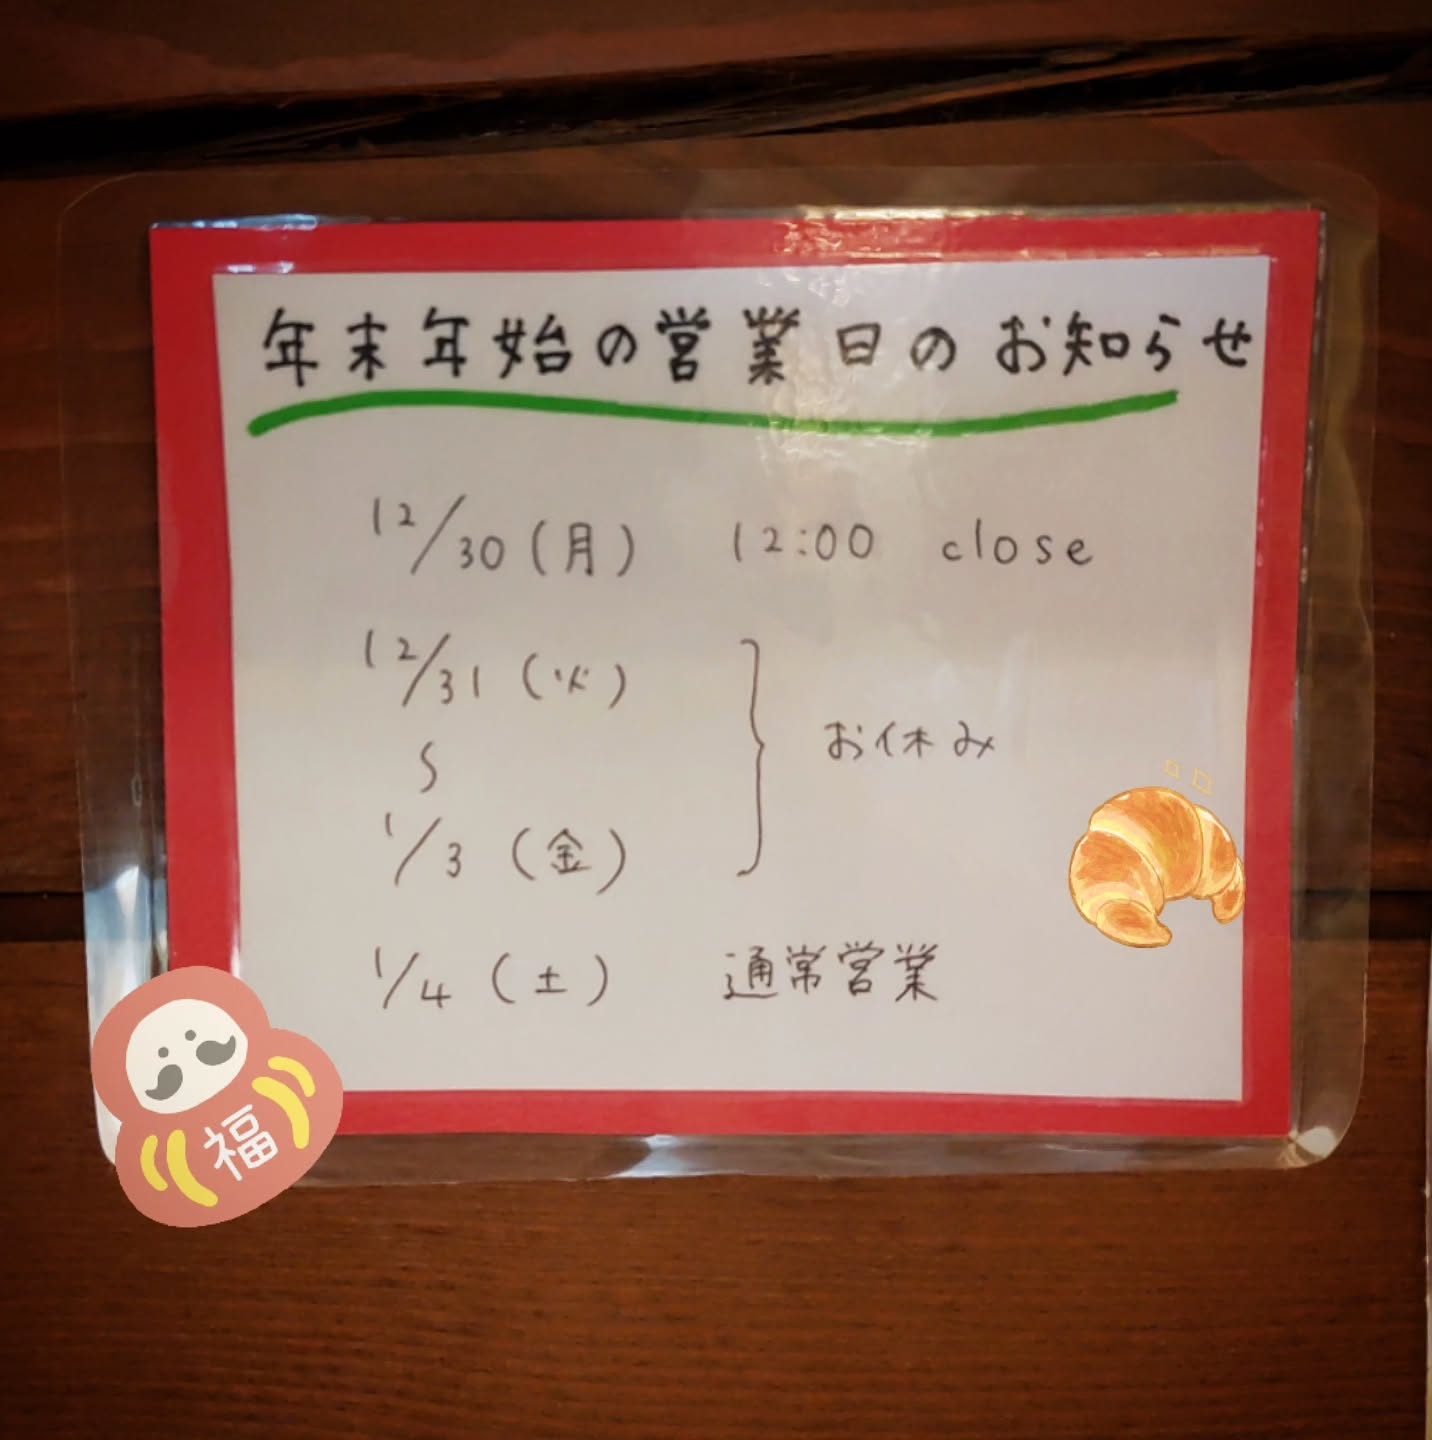 年末年始の営業日のお知らせ
12/30(月) 12:00 close
12/31(火)
〜
1/3(金)
お休み
1/4(土) 通常営業
福